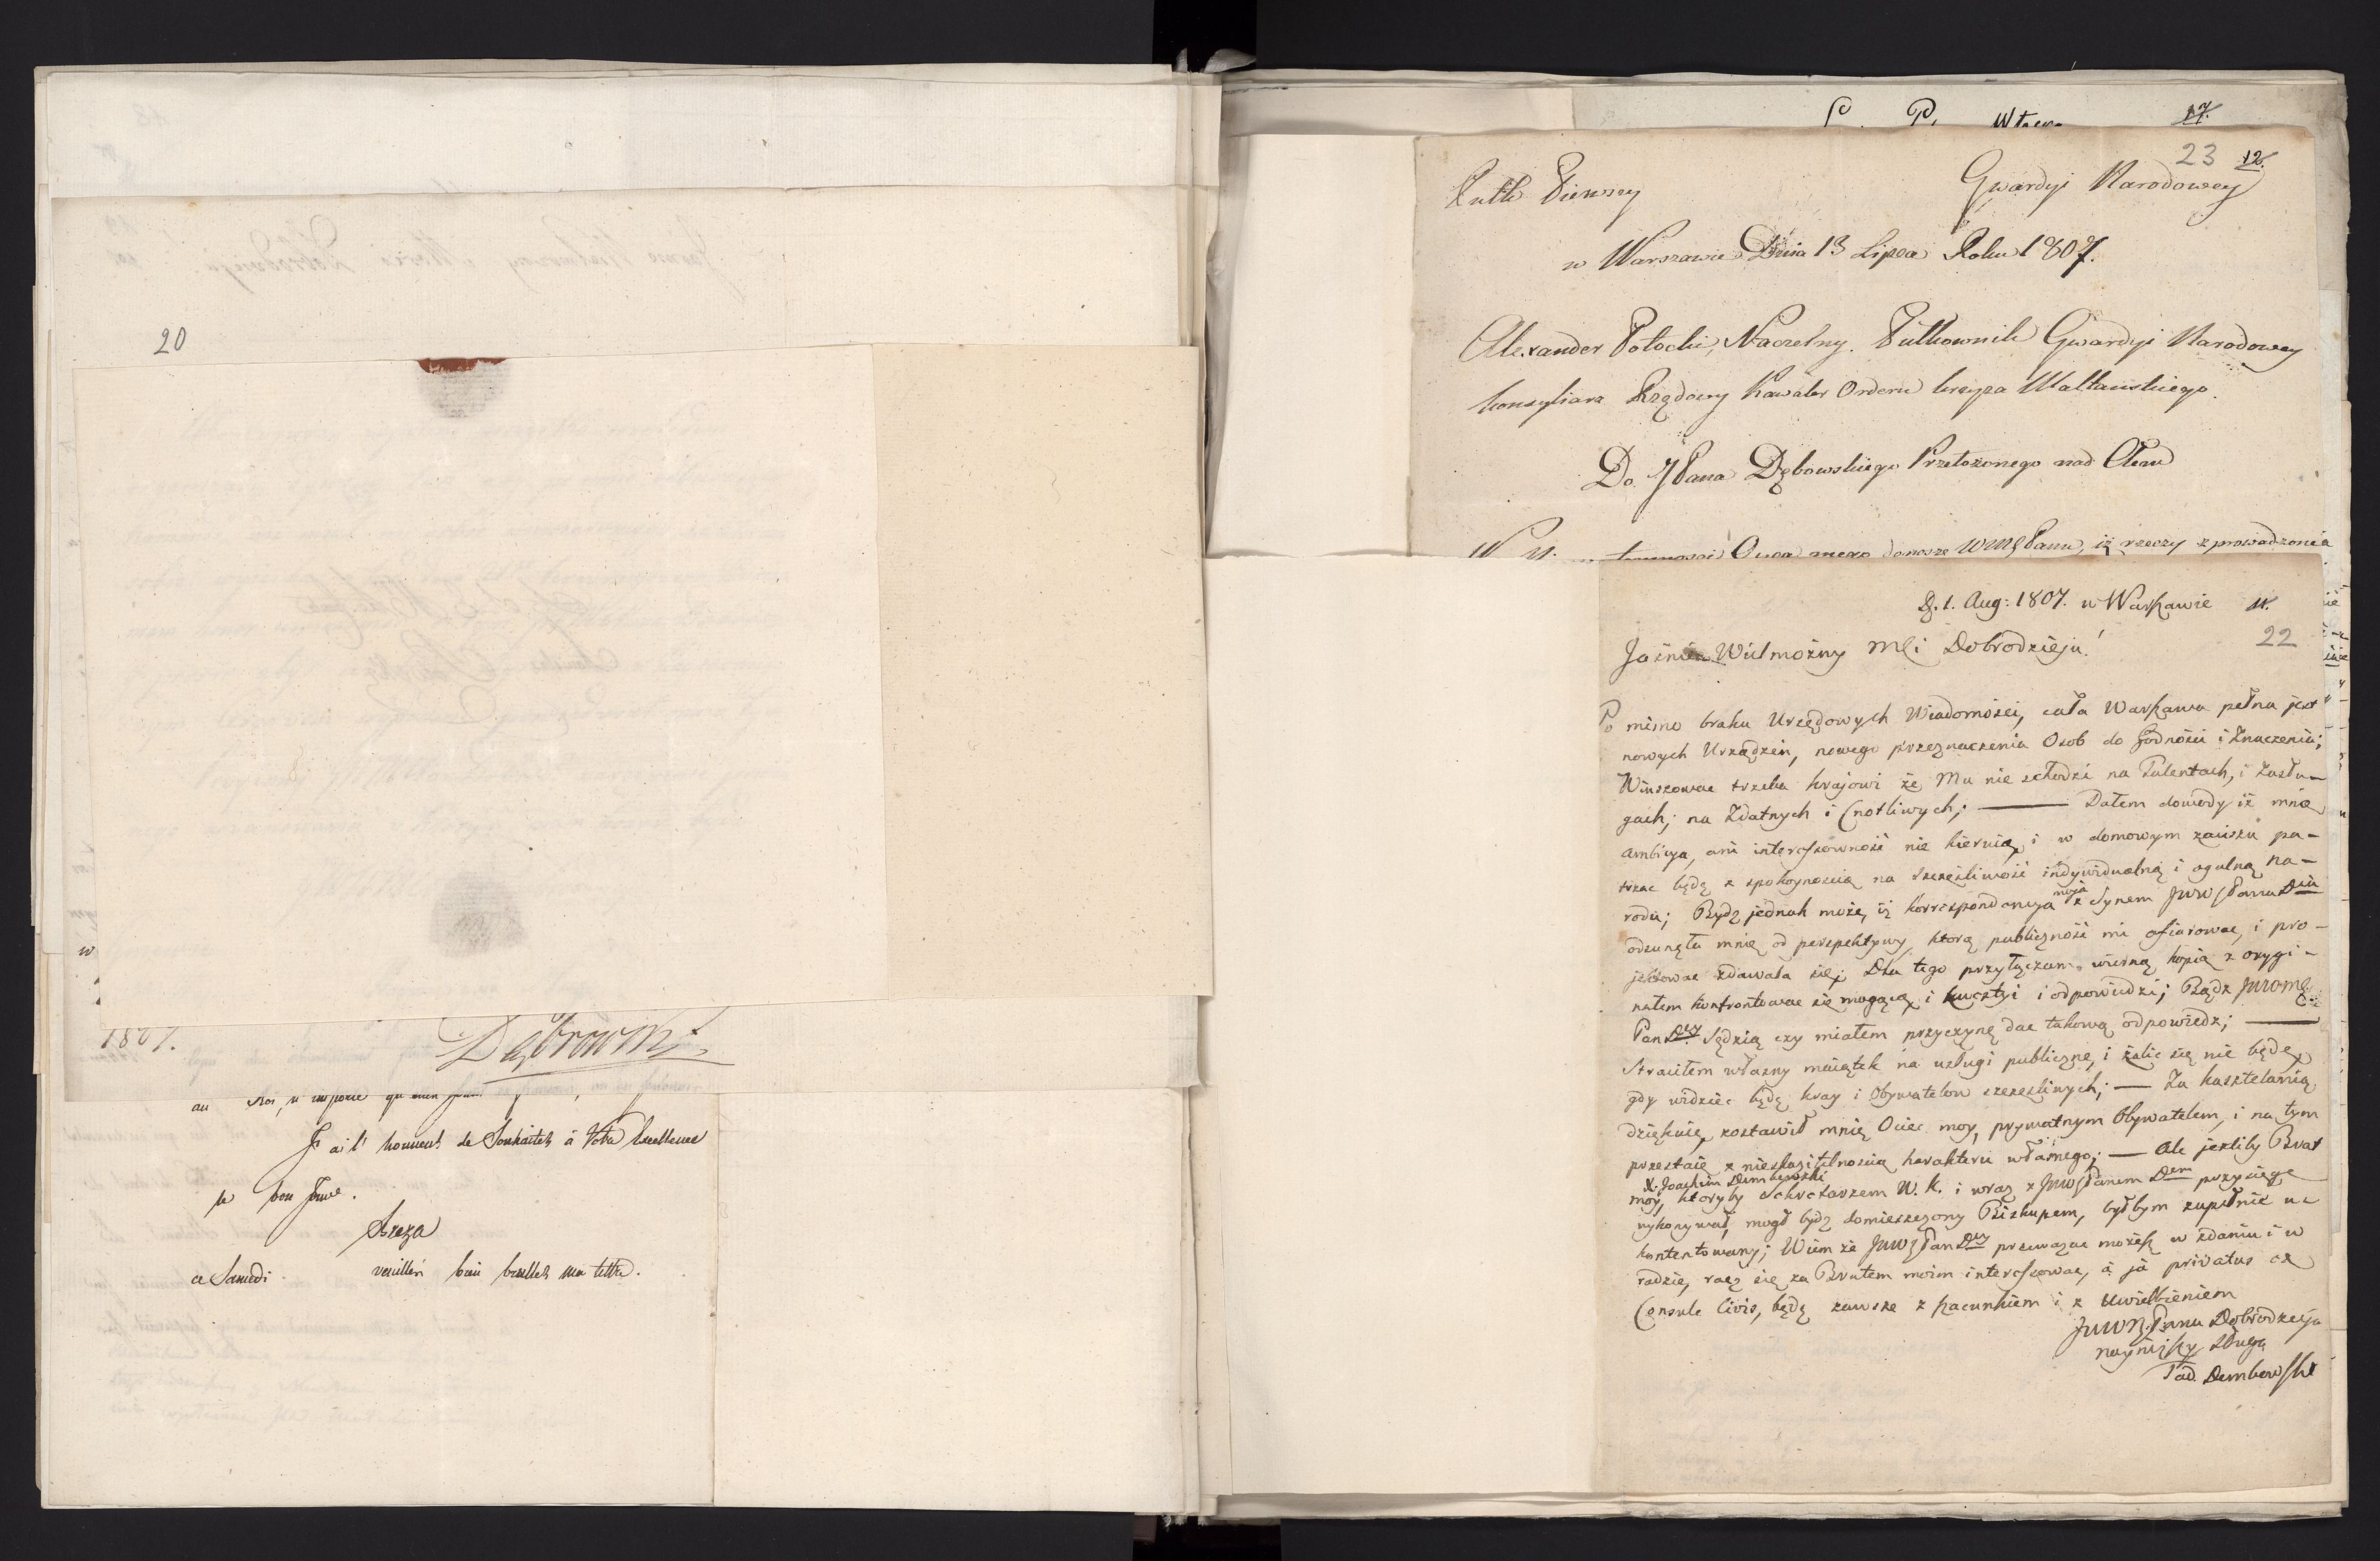 20
1807.
Dąbrowski
J'ai l'honneur de Souhaiter à Votre Excellence
le bon jour.
Breza
ce Samedi veuillez bien bruller ma lettre.
17.
23 12.
Pułk Pierwszy Gwardyi Narodowey
w Warszawie Dnia 13 Lipca Roku 1807.
Alexander Potocki, Naczelny Pułkownik Gwardyi Narodowey
Konsyliarz Rządowy Kawaler Orderu krzyża Maltańskiego.
Do JPana Dębowskiego Przełożonego nad
Oyca mego donoszę WMPanu, iż rzeczy zprowadzone
D. 1. Aug: 1807. w Warszawie 11.
22
Jaśnie Wielmożny Mci Dobrodzieju!
Po mimo braku Urzędowych Wiadomości, cała Warszawa pełna jest
nowych Urządzeń, nowego przeznaczenia Osob do Godności i Znaczenia;
Winszować trzeba krajowi że Mu nie schodzi na Talentach, i Zasłu-
gach; na Zdatnych i Cnotliwych; — Dałem dowody iż mną
ambicya, ani interessowność nie kieruią, i w domowym zaciszu pa-
trzać będę z spokoynością na szczęśliwość indywidualną i ogulną na-
rodu; Bydź jednak może, iż korrespondencya moja z Synem JWW Pana Dja
odsunęła mnie od perspektywy, którą publiczność mi ofiarować, i pro-
jektować zdawała się; Dla tego przyłączam wierną kopią z orygi-
nałem konfrontować się mogącą i kwestyi i odpowiedzi; Bądź JWWMć
Pan Dzy Sędzią czy miałem przyczynę dać takową odpowiedź; —
Straciłem własny maiątek na usługi publiczne, i żalić się nie będę,
gdy widzieć będę kray i Obywatelow szczęśliwych; — Za kasztelanią
dziękuię, zostawił mnie Ociec moy, prywatnym Obywatelem, i na tym
przestaię z nieskazitelnością harakteru własnego; — Ale jeżliby Brat
moy, X. Joachim Dembowski ktoryby Sekretarzem W. K. i wraz z JWW Panem Dem przysięgę
wykonywał, mogł bydź domieszczony Biskupem, byłbym zupełnie u-
kontentowany; Wiem że JWW Pan Dzy przeważać możesz w zdaniu i w
radzie, racz się za Bratem moim interessować, a ja privatus ex
Consule Civis, będę zawsze z szacunkiem i z Uwielbieniem
JWW Pana Dobrodzieja
nayniższy Sługa
Tad. Dembowski